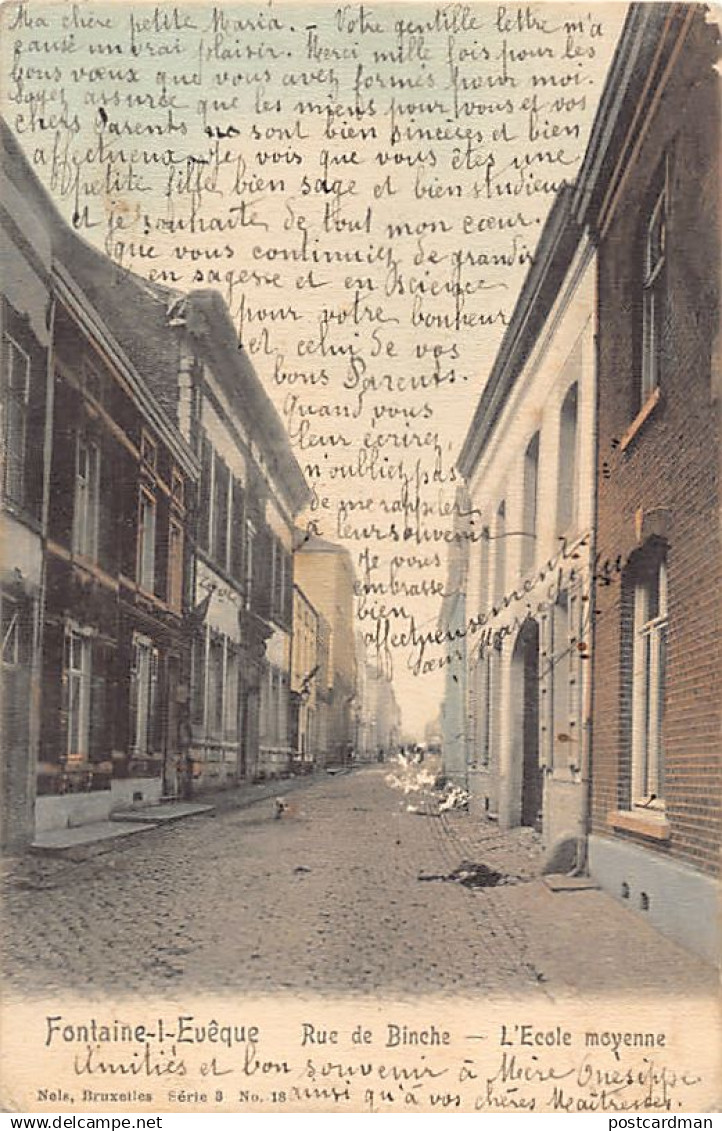 Ma chère petite Maria. - Votre gentille lettre m'a
causé un vrai plaisir. - Merci mille fois pour les
bons vœux que vous avez formés pour moi.
Soyez assurée que les miens pour vous et vos
chers Parents ne sont bien sincères et bien
affectueux. Je vois que vous êtes une
petite fille bien sage et bien studieuse
et je souhaite de tout mon cœur
que vous continuiez de grandir
en sagesse et en Science
pour votre bonheur
et celui de vos
bons Parents.
Quand vous
leur écrirez,
n'oubliez pas
de me rappeler
à leur souvenir
Je vous
embrasse
bien
affectueusement.
Sœur Marie
Fontaine-l-Evêque Rue de Binche — L'Ecole moyenne
Amitiés et bon souvenir à Mère Onésippe
ainsi qu'à vos chères Maîtresses.
Nels, Bruxelles Série 3 No. 18
postcardman
Delcampe.net